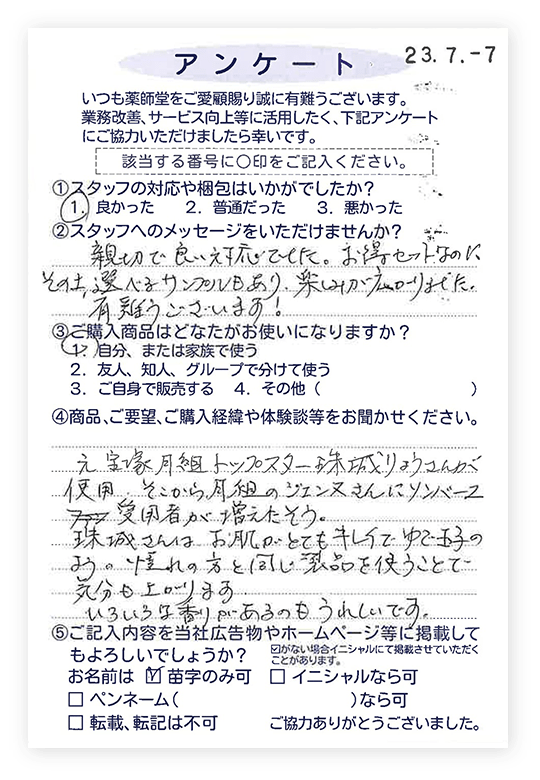 アンケート
23.7.-7
いつも薬師堂をご愛顧賜り誠に有難うございます。
業務改善、サービス向上等に活用したく、下記アンケート
にご協力いただけましたら幸いです。
該当する番号に〇印をご記入ください。
①スタッフの対応や梱包はいかがでしたか?
1. 良かった 2. 普通だった 3. 悪かった
②スタッフへのメッセージをいただけませんか?
親切で良い対応でした。お得セットなのに
その上、選べるサンプルもあり、楽しみが広がりました。
有難うございます!
③ご購入商品はどなたがお使いになりますか?
1. 自分、または家族で使う
2. 友人、知人、グループで分けて使う
3. ご自身で販売する 4. その他( )
④商品、ご要望、ご購入経緯や体験談等をお聞かせください。
元宝塚月組トップスター珠城りょうさんが
使用。そこから月組のジェンヌさんにソンバーユ
愛用者が増えたそう。
珠城さんは お肌がとてもキレイでゆで玉子の
よう。憧れの方と同じ製品を使うことで
気分も上がります。
いろいろな香りがあるのもうれしいです。
⑤ご記入内容を当社広告物やホームページ等に掲載して
もよろしいでしょうか?
☑がない場合イニシャルにて掲載させていただく
ことがあります。
お名前は ☑ 苗字のみ可 □ イニシャルなら可
□ ペンネーム( )なら可
□ 転載、転記は不可 ご協力ありがとうございました。